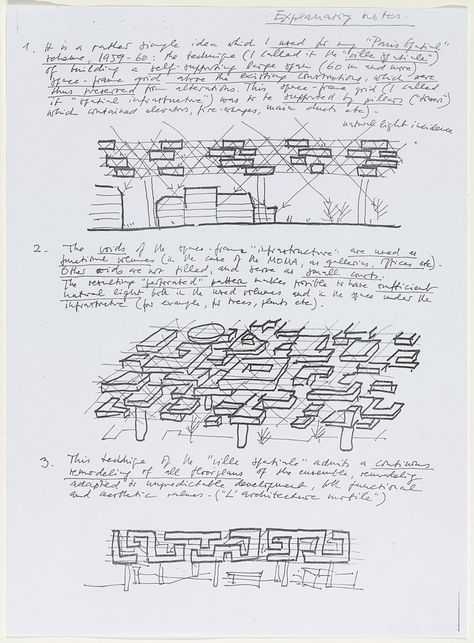 Explanatory notes.
1. It is a rather simple idea which I used for my "Paris Spatial"
scheme, 1959-60: the technique (I called it the "ville spatiale")
of building a self-supporting large span (60 m and more)
space-frame grid above the existing constructions, which were
thus preserved from alterations. This space-frame grid (I called
it "spatial infrastructure") was to be supported by pillars ("towers")
which contained elevators, fire-escapes, main ducts etc).
natural light incidence
2. The voids of the space-frame "infrastructure" are used as
functional volumes (in the case of the MOMA, as galleries, offices etc).
Other voids are not filled, and serve as small courts.
The resulting "perforated" pattern makes possible to have sufficient
natural light both in the used volumes and in the space under the
infrastructure (for example, for trees, plants etc).
3. This technique of the "ville spatiale" admits a continuous
remodeling of all floorplans of the ensemble, remodeling
adapted to unpredictable development, both functional
and aesthetic values - ("L'architecture mobile")